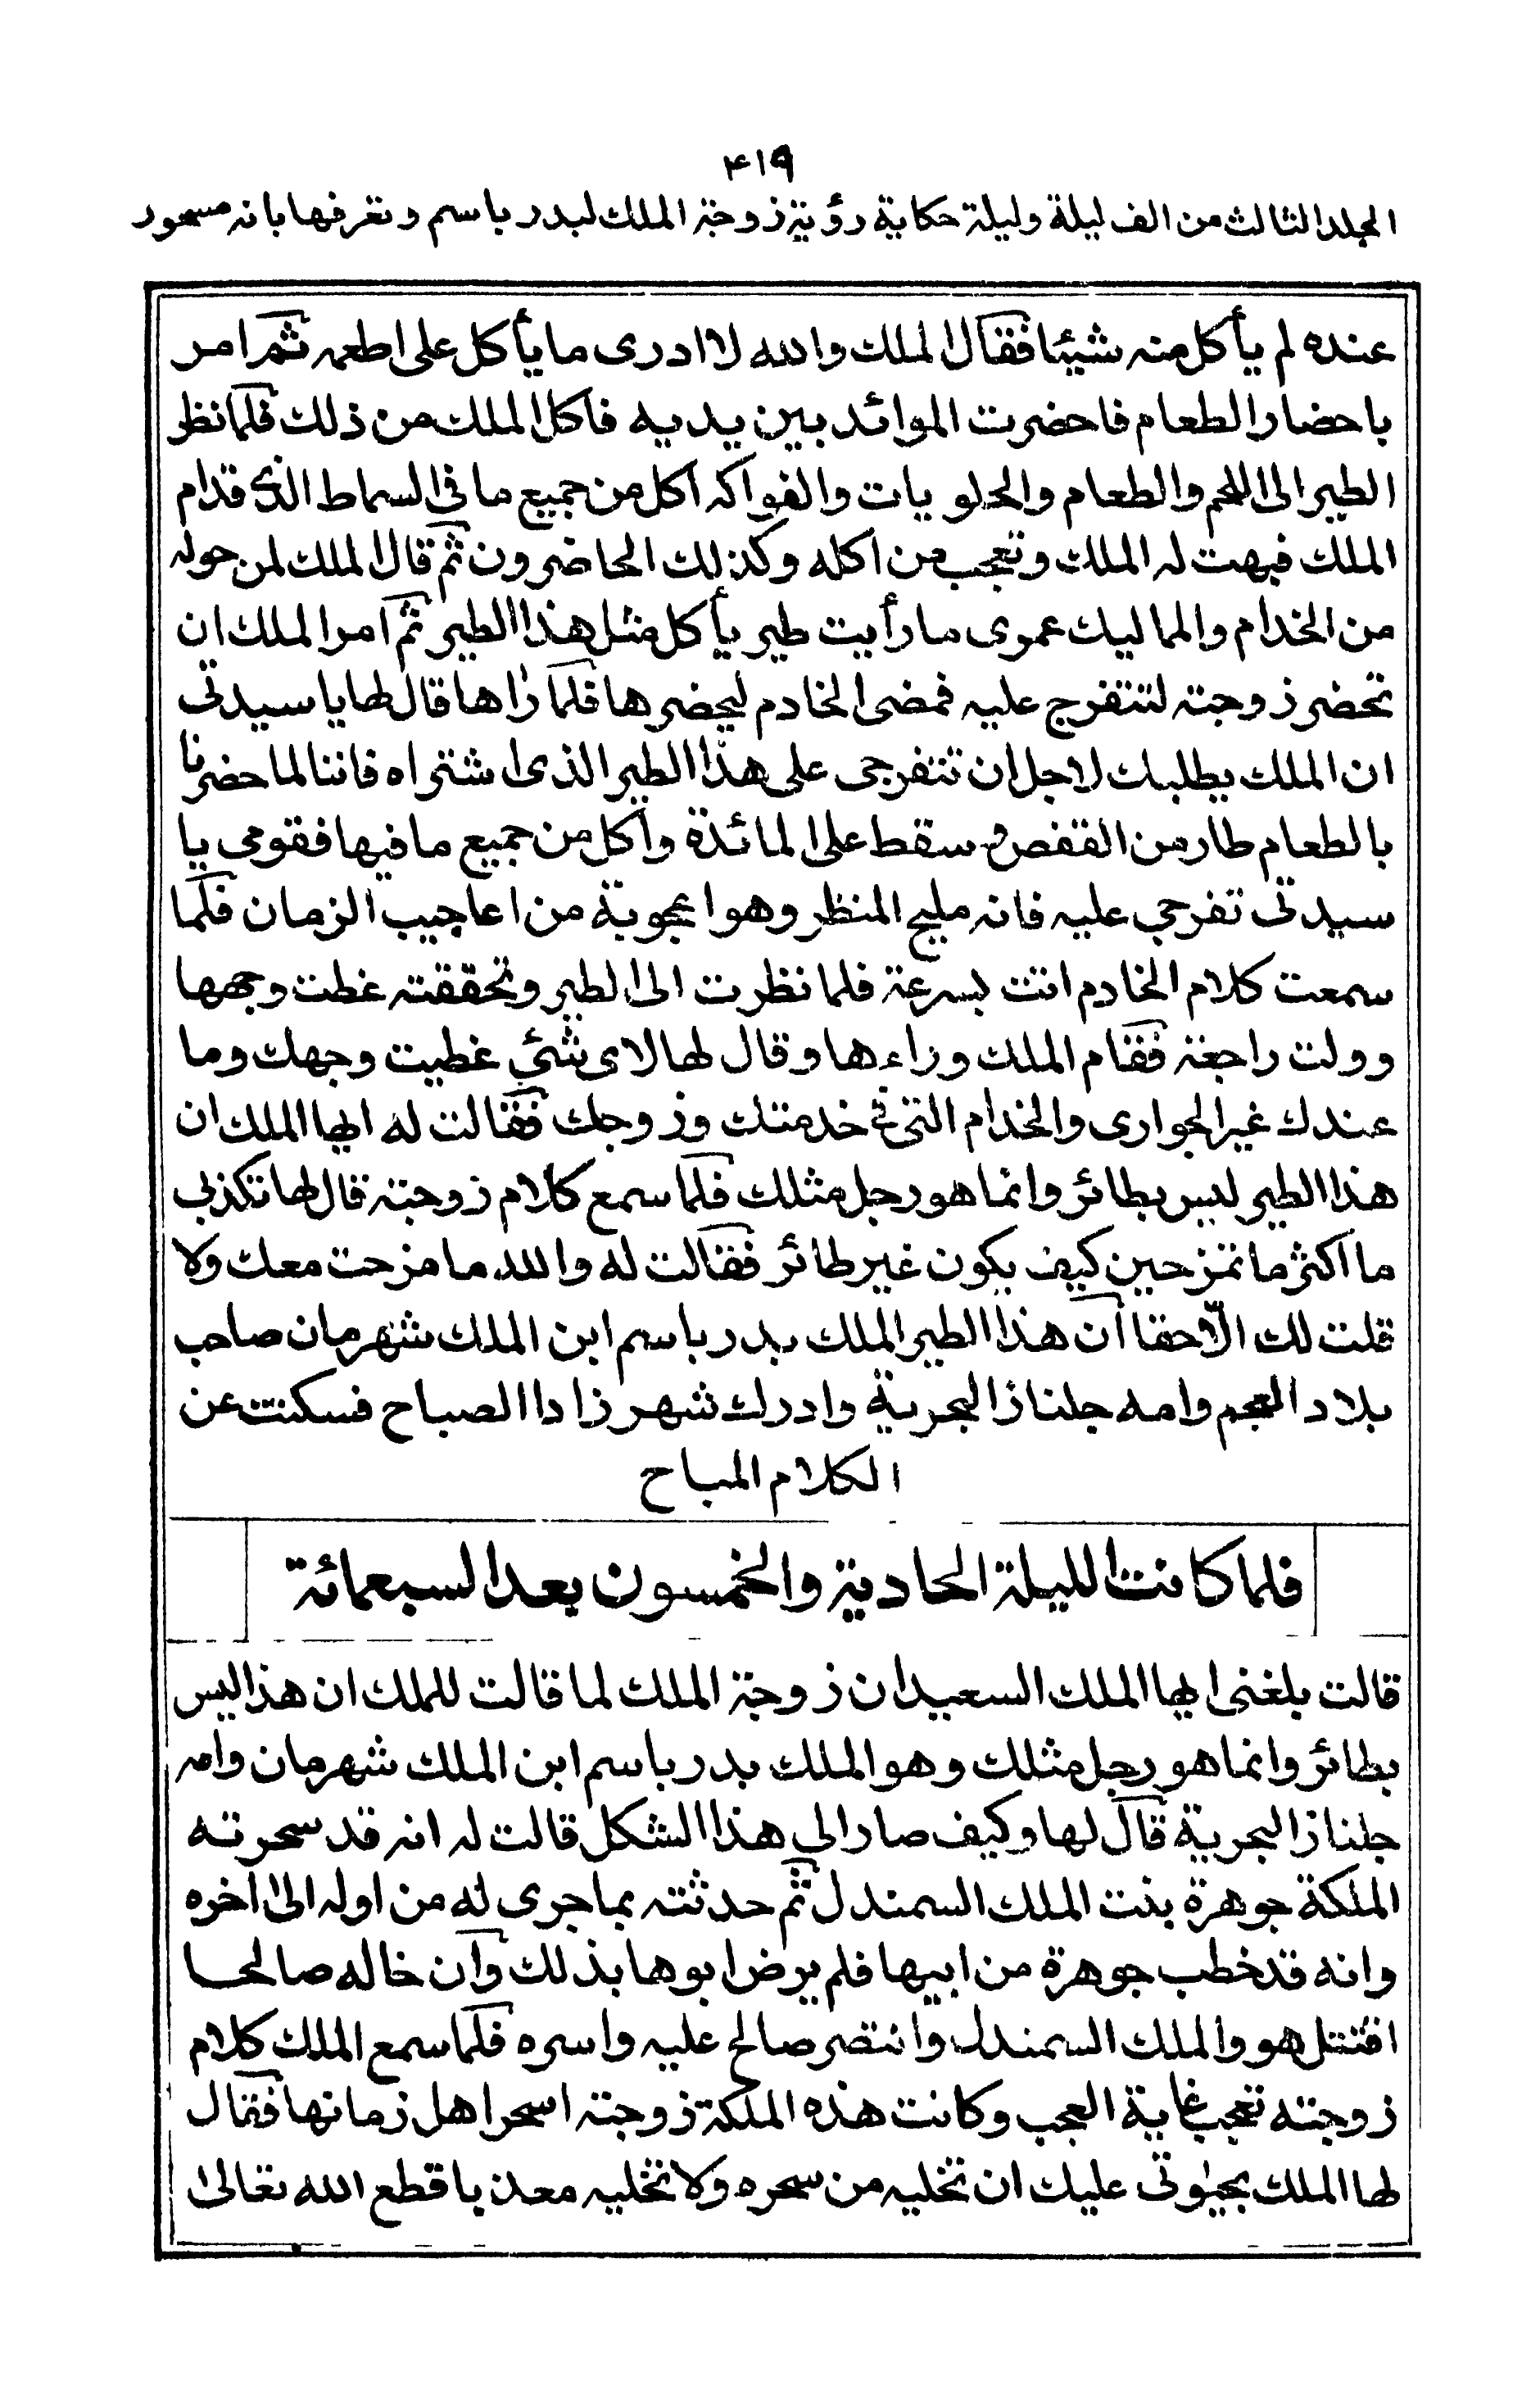 ۴۱۹
المجلد الثالث من الف ليلة وليلة حكاية رؤية زوجة الملك لبدر باسم وتعرفها بانه مسحور
عنده لم يأكل منه شيئا فقال الملك والله لا ادرى ما يأكل على اطعمه ثم امر
باحضار الطعام فاحضرت الموائد بين يديه فاكل الملك من ذلك فلما نظر
الطير الى اللحم والطعام والحلويات والفواكه اكل من جميع ما فى السماط الذى قدام
الملك فبهت له الملك وتعجب من اكله وكذلك الحاضرون ثم قال الملك لمن حوله
من الخدام والمماليك عمرى ما رأيت طير يأكل مثل هذا الطير ثم امر الملك ان
تحضر زوجته لتتفرج عليه فمضى الخادم ليحضرها فلما رآها قال لها يا سيدتى
ان الملك يطلبك لاجل ان تتفرجى على هذا الطير الذى اشتراه فاننا لما حضرنا
بالطعام طار من القفص وسقط على المائدة واكل من جميع ما فيها فقومى يا
سيدتى تفرجى عليه فانه مليح المنظر وهو اعجوبة من اعاجيب الزمان فلما
سمعت كلام الخادم اتت بسرعة فلما نظرت الى الطير وتحققته غطت وجهها
وولت راجعة فقام الملك وراءها وقال لها لاى شئ غطيت وجهك وما
عندك غير الجوارى والخدام التى فى خدمتك وزوجك فقالت له ايها الملك ان
هذا الطير ليس بطائر وانما هو رجل مثلك فلما سمع كلام زوجته قال لها تكذبى
ما اكثر ما تمزحين كيف يكون غير طائر فقالت له والله ما مزحت معك ولا
قلت لك الّا حقا ان هذا الطير الملك بدر باسم ابن الملك شهرمان صاحب
بلاد العجم وامه جلناز البحرية وادرك شهرزاد الصباح فسكتت عن
الكلام المباح
فلما كانت الليلة الحادية والخمسون بعد السبعمائة
قالت بلغنى ايها الملك السعيد ان زوجة الملك لما قالت للملك ان هذا ليس
بطائر وانما هو رجل مثلك وهو الملك بدر باسم ابن الملك شهرمان وامه
جلناز البحرية قال لها وكيف صار الى هذا الشكل قالت له انه قد سحرته
الملكة جوهرة بنت الملك السمندل ثم حدثته بما جرى له من اوله الى اخره
وانه قد خطب جوهرة من ابيها فلم يرض ابوها بذلك وان خاله صالحا
اقتتل هو والملك السمندل وانتصر صالح عليه واسره فلما سمع الملك كلام
زوجته تعجب غاية العجب وكانت هذه الملكة زوجته اسحر اهل زمانها فقال
لها الملك بحيوتى عليك ان تخليه من سحره ولا تخليه معذبا قطع الله تعالى